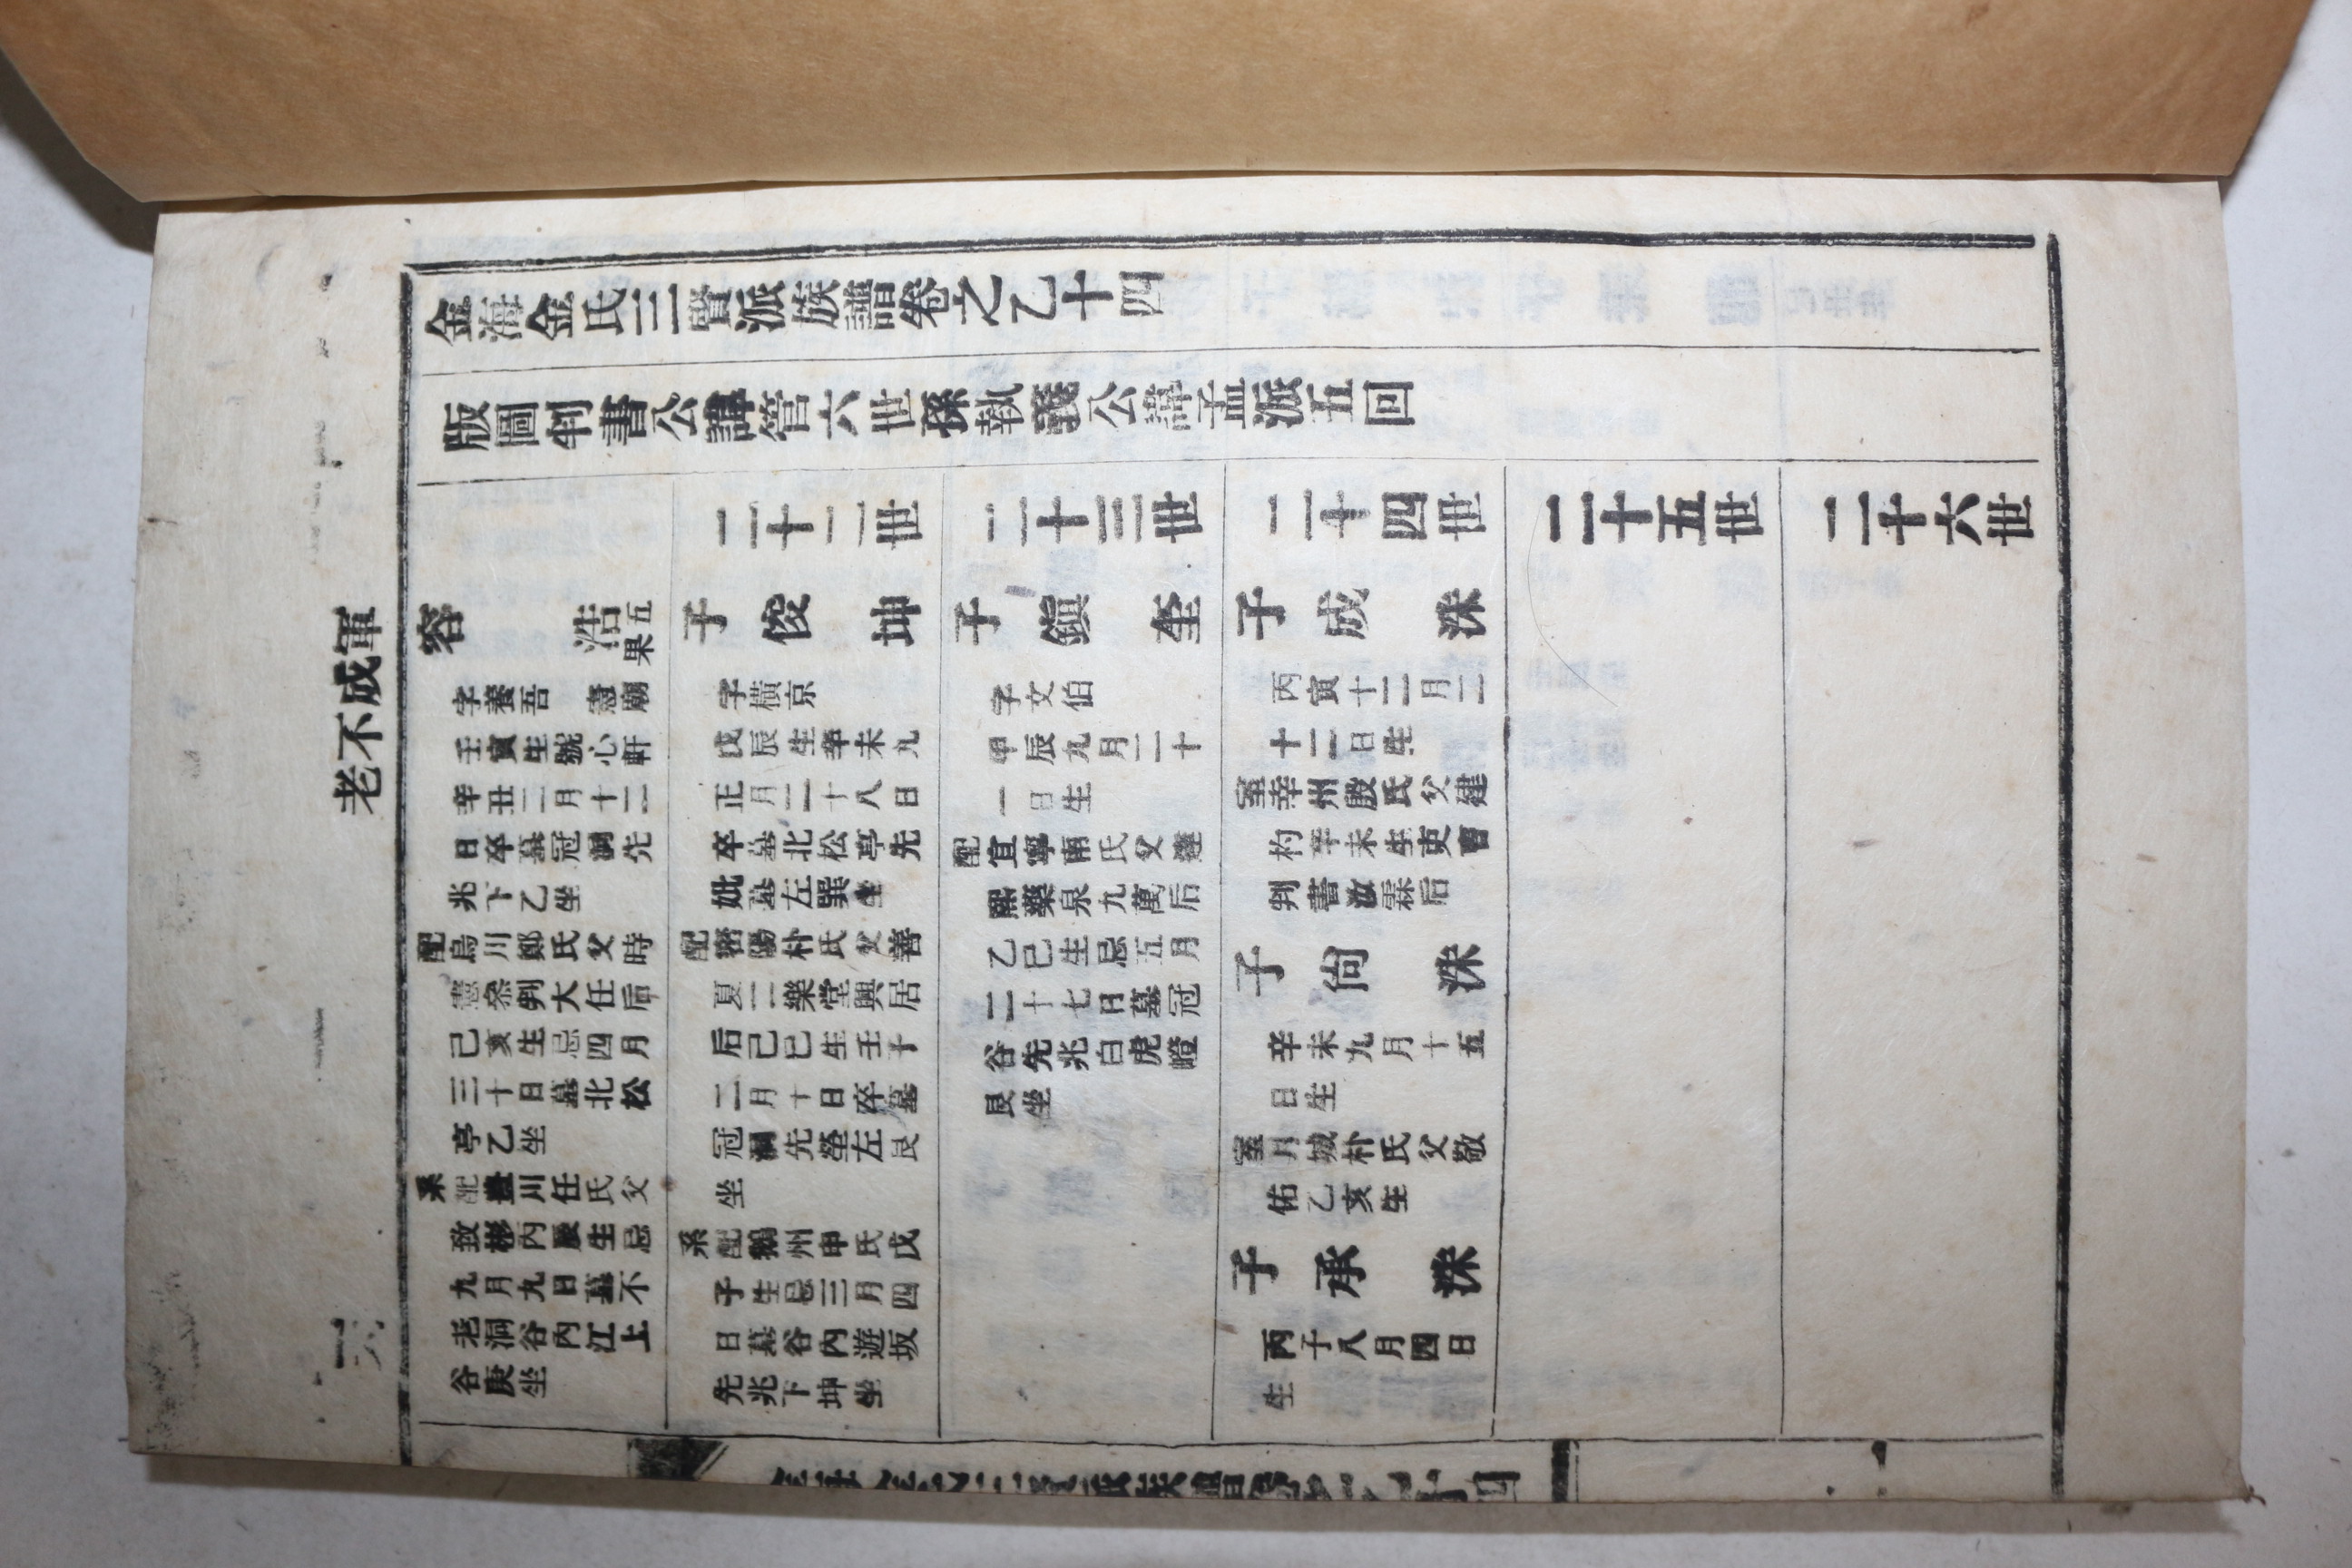 老不成軍
金海金氏三賢派族譜卷之乙十四
版圖判書公諱管六世孫執義公諱孟派五回
容浩 五果
字養吾 憲廟
壬寅生號心軒
辛丑二月十二
日卒墓冠洞先
兆下乙坐
配烏川鄭氏父時
憲叅判大任后
己亥生忌四月
三十日墓北松
亭乙坐
系配豊川任氏父
致彬丙辰生忌
九月九日墓不
老洞谷內江上
谷庚坐
二十二世
子俊坤
字橫京
戊辰生辛未九
正月二十八日
卒墓北松亭先
妣墓左巽坐
配密陽朴氏父善
夏二樂堂興居
后己巳生壬子
二月十日卒墓
冠洞先塋左艮
坐
系配鵝州申氏戊
子生忌三月四
日墓谷內遊坂
先兆下坤坐
二十三世
子鎭奎
字文伯
甲辰九月二十
一日生
配宜寧南氏父達
熙藥泉九萬后
乙巳生忌五月
二十七日墓冠
谷先兆白虎嶝
艮坐
二十四世
子成洙
丙寅十二月二
十二日生
室幸州殷氏父建
杓辛未生吏曹
判書汝霖后
子尙洙
辛未九月十五
日生
室月城朴氏父敬
佑乙亥生
子承洙
丙子八月四日
生
二十五世
二十六世
金海金氏三賢派族譜卷之乙十四